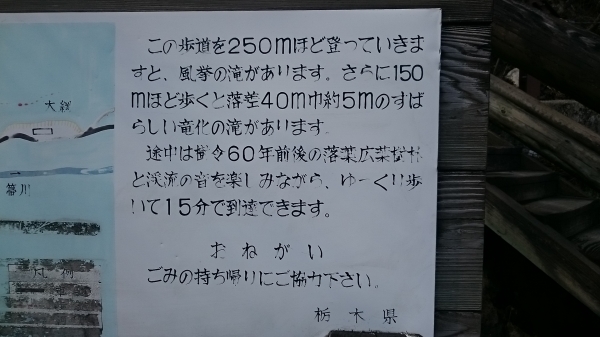 この歩道を250mほど登っていきま
すと、風挙の滝があります。さらに150
mほど歩くと落差40m巾約5mのすば
らしい竜化の滝があります
途中は樹令60年前後の落葉広葉樹林
と渓流の音を楽しみながら、ゆっくり歩
いて15分で到達できます。
おねがい
ごみの持ち帰りにご協力下さい。
栃木県
大網
箒川
凡例